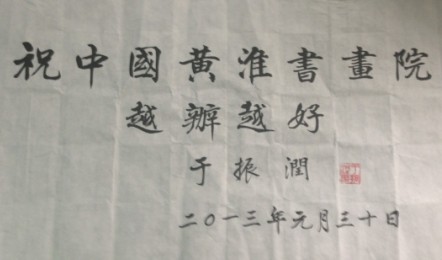 祝中國黄淮書畫院
越辦越好
于振潤
二〇一三年元月三十日